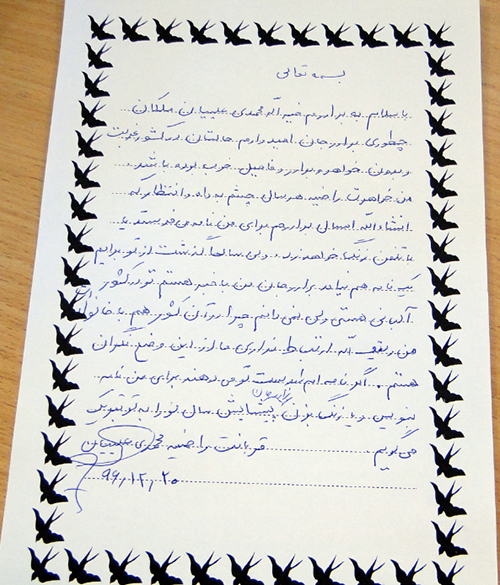 بسمه تعالی
با سلام به برادرم ضیه اله محمدی علیبیان ملکان
چطوری برادر جان امیدوارم حالتان در کشور غربت
و بدون خواهر و برادر و فامیل خوب بوده باشد
من خواهرت راضیه هر سال چشم به راه و انتظار که
انشاءالله امسال برادرم برای من نامه می فرستد یا
با تلفن زنگ خواهد زد ولی سالها گذشت از تو برایم
یک نامه هم نیامد برادر جان من با خبر هستم تو در کشور
آلبانی هستی ولی نمی دانم چرا در آن کشور هم با خانواده
من ارتباط نداری ما از این وضع نگران
هستم اگر نامه ام بدست تو می دهند برای من نامه
بنویس و یا زنگ بزن پیشاپیش سال نو را به تو تبریک
می گویم قربانت راضیه محمدی علیبیان
۹۹/۱۲/۲۰